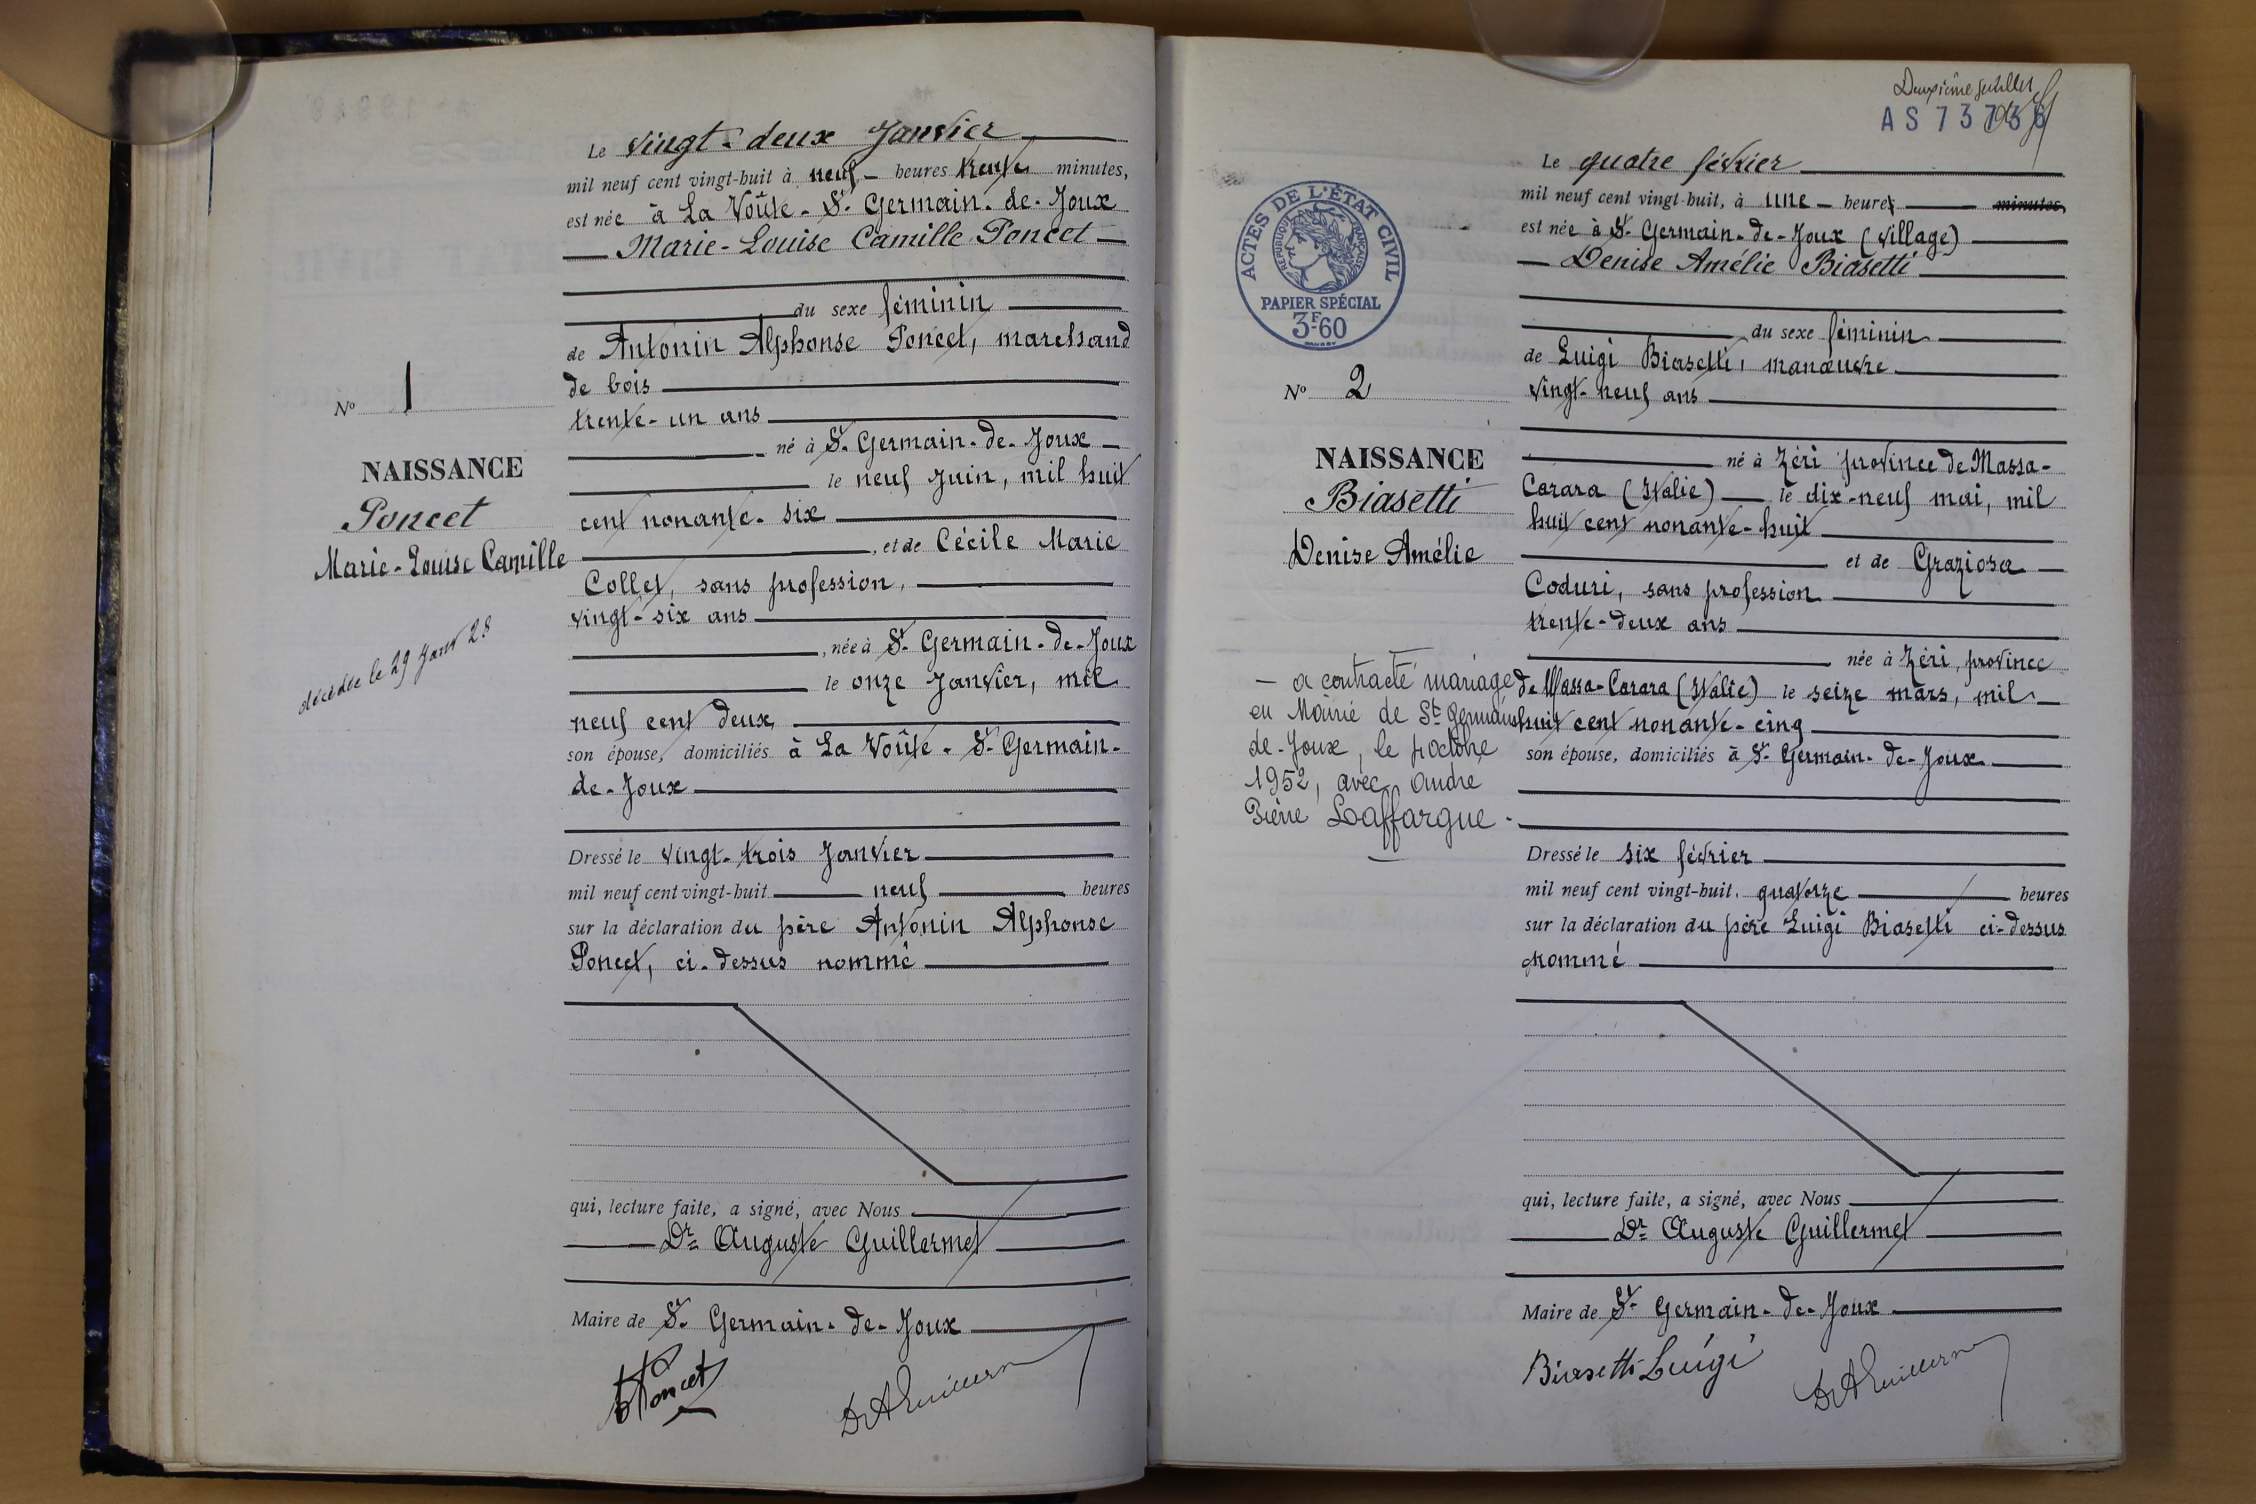 Le vingt-deux Janvier
mil neuf cent vingt-huit à neuf heures trente minutes,
est née à La Voûte-St-Germain-de-Joux
Marie-Louise Camille Poncet
du sexe féminin
de Antonin Alphonse Poncet, marchand
de bois
trente-un ans
né à St-Germain-de-Joux
le neuf Juin, mil huit
cent nonante-six
, et de Cécile Marie
Collet, sans profession,
vingt-six ans
, née à St-Germain-de-Joux
le onze Janvier, mil
neuf cent deux,
son épouse, domiciliés à La Voûte-St-Germain-
de-Joux
Dressé le vingt-trois Janvier
mil neuf cent vingt-huit neuf heures
sur la déclaration du père Antonin Alphonse
Poncet, ci-dessus nommé
qui, lecture faite, a signé, avec Nous
Dr Auguste Guillermet
Maire de St-Germain-de-Joux
Poncet
Dr A Guillerm
No 1
NAISSANCE
Poncet
Marie-Louise Camille
décédée le 29 Janv 28
Deuxième feuillet
AS 73736
Le quatre février
mil neuf cent vingt-huit, à une heures minutes,
est née à St-Germain-de-Joux (village)
Denise Amélie Biasetti
du sexe féminin
de Luigi Biasetti, manœuvre
vingt-neuf ans
né à Zéri province de Massa-
Carara (Italie) le dix-neuf mai, mil
huit cent nonante-huit
et de Graziosa
Coduri, sans profession
trente-deux ans
née à Zéri, province
de Massa-Carara (Italie) le seize mars, mil
huit cent nonante-cinq
son épouse, domiciliés à St-Germain-de-Joux
Dressé le six février
mil neuf cent vingt-huit. quatorze heures
sur la déclaration du père Luigi Biasetti ci-dessus
nommé
qui, lecture faite, a signé, avec Nous
Dr Auguste Guillermet
Maire de St-Germain-de-Joux
Biasetti Luigi
Dr A Guillerm
ACTES DE L'ÉTAT CIVIL
RÉPUBLIQUE FRANÇAISE
PAPIER SPÉCIAL
3F60
No 2
NAISSANCE
Biasetti
Denise Amélie
— a contracté mariage
en Mairie de St Germain
de-Joux, le octobre
1952, avec André
Pierre Laffargue.